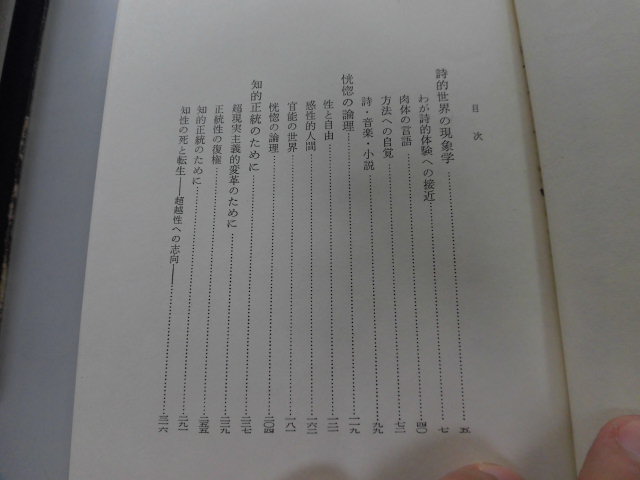 目次
詩的世界の現象学……五
わが詩的体験への接近……七
肉体の言語……四〇
方法への自覚……七二
詩・音楽・小説……九九
恍惚の論理……一一九
性と自由……一二一
感性的人間……一六二
官能の世界……一八一
恍惚の論理……二〇四
知的正統のために……二三七
超現実主義的変革のために……二三九
正統性の復権……二五五
知的正統のために……二九一
知性の死と転生——超越性への志向——……三一六